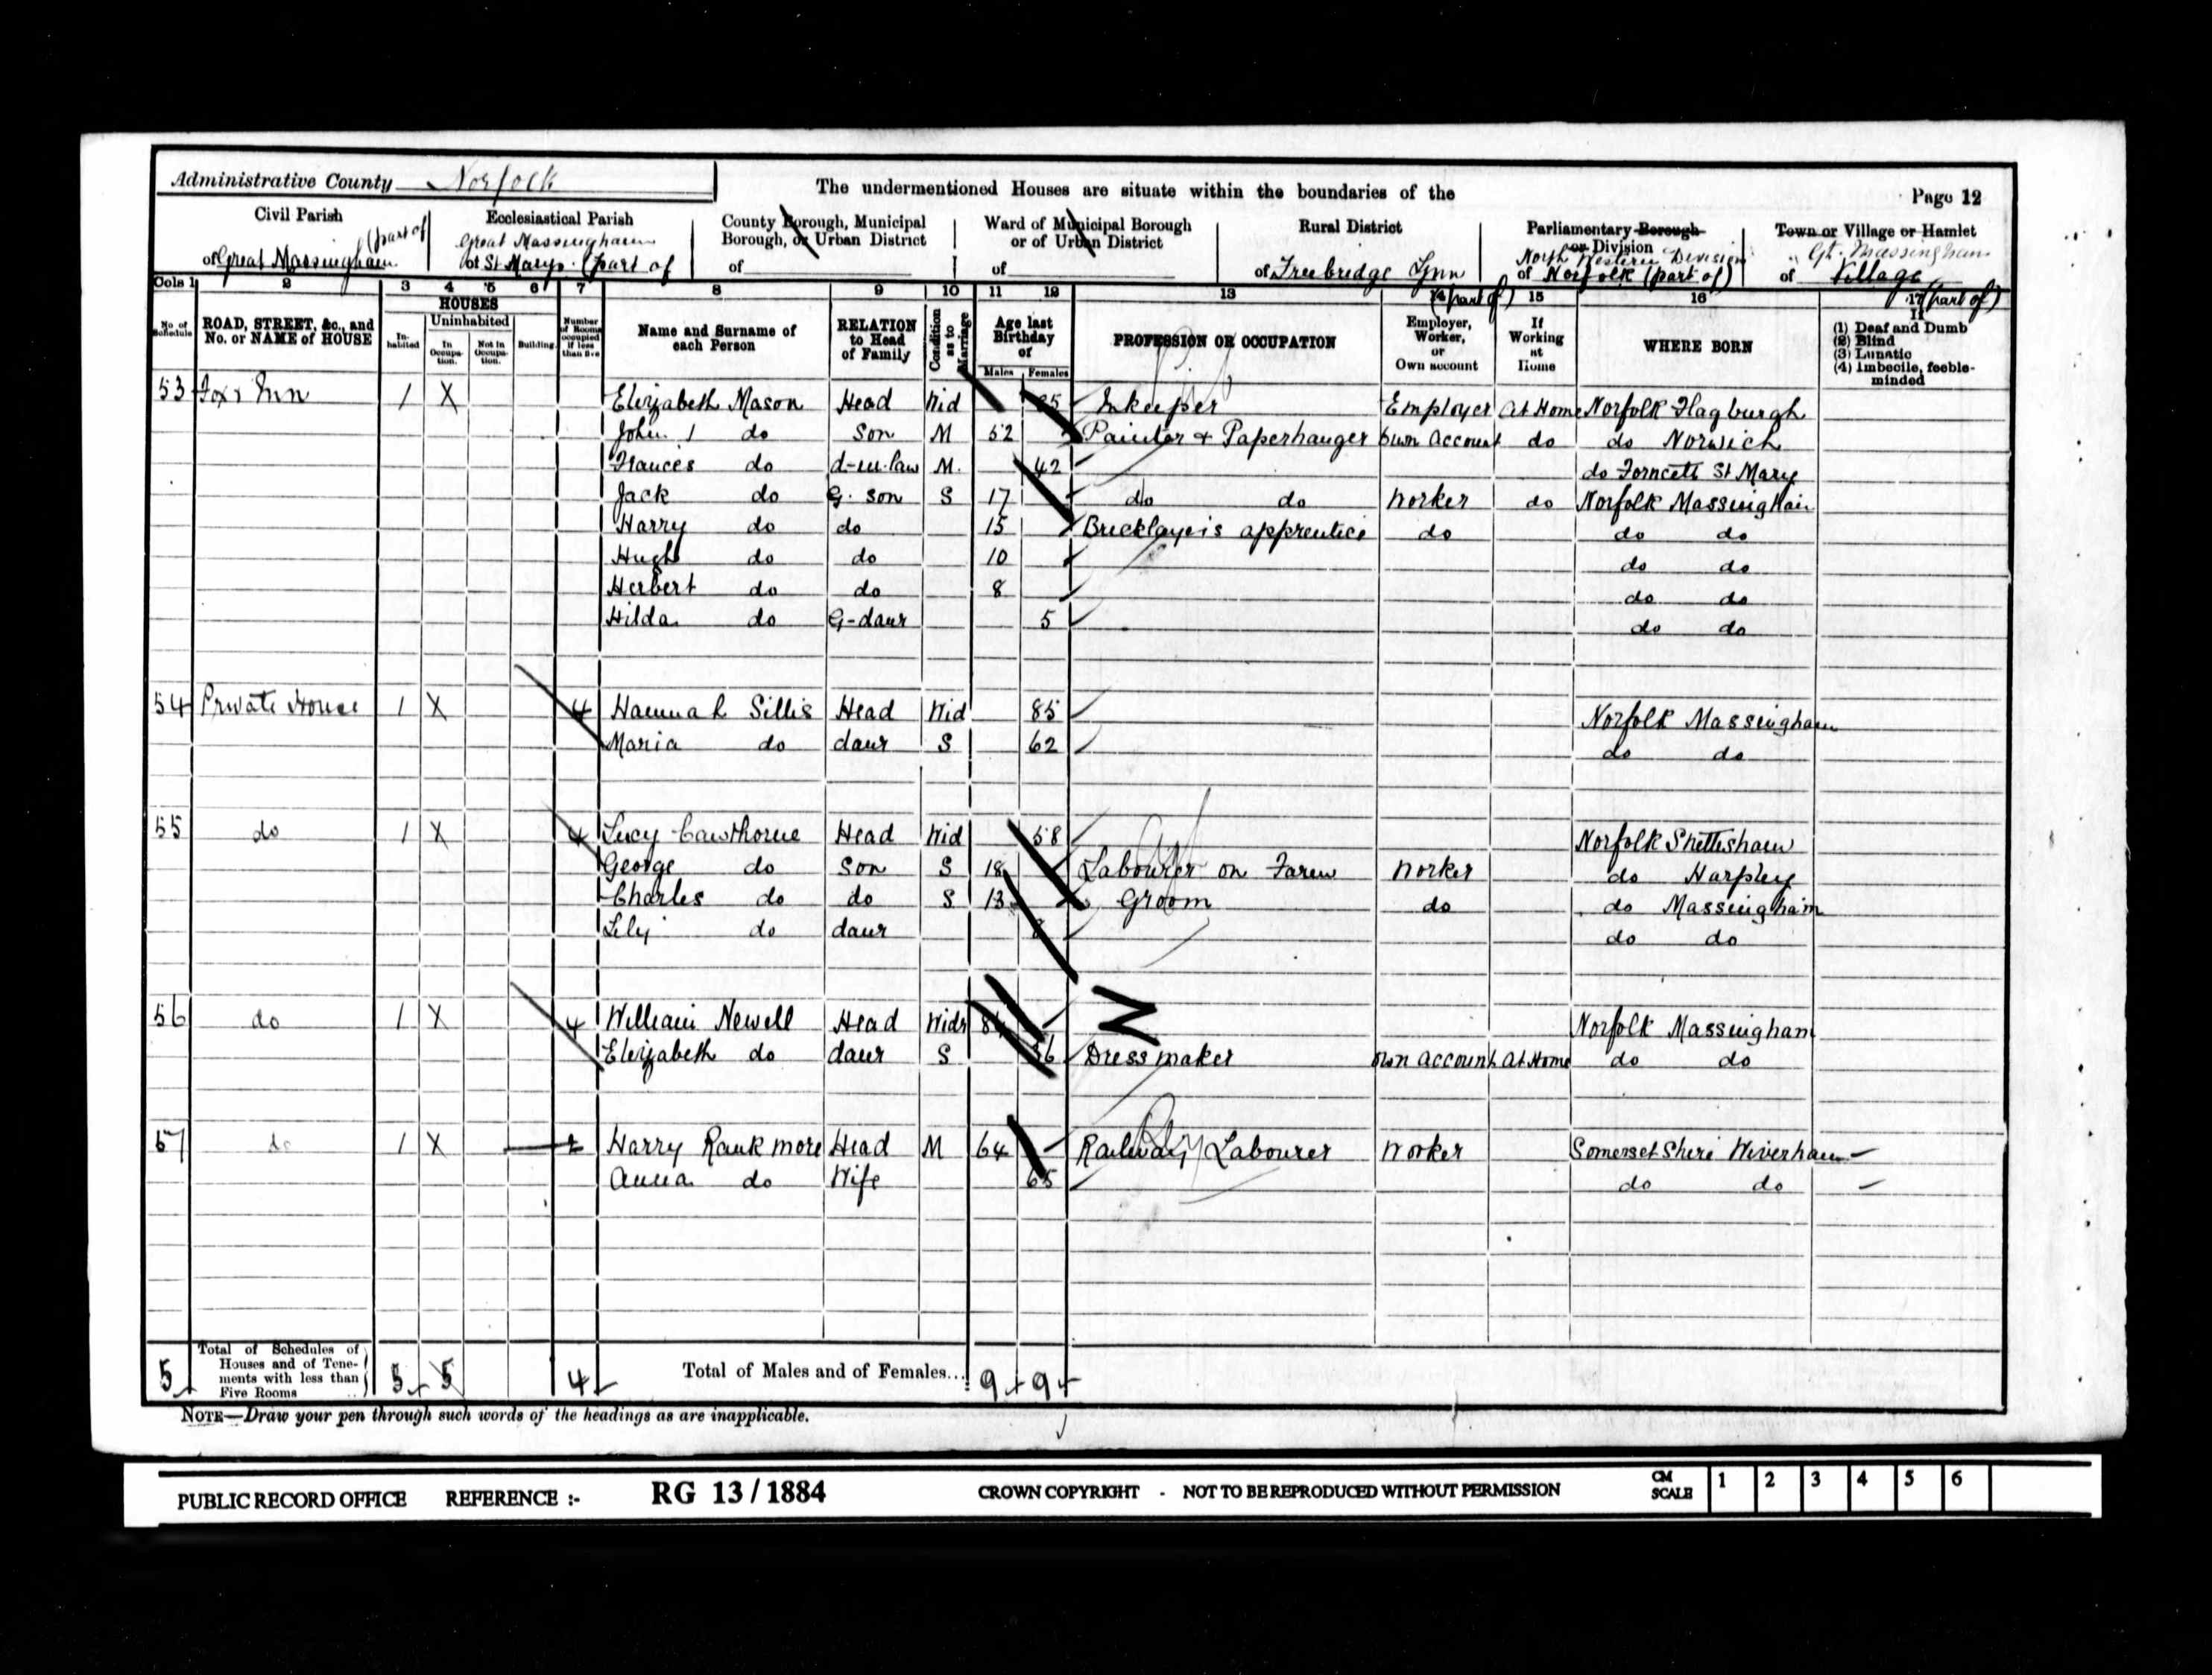 Administrative County Norfolk
The undermentioned Houses are situate within the boundaries of the
Page 12
Civil Parish
of Great Massingham (part of
Ecclesiastical Parish
Great Massingham
of St Marys (part of
County Borough, Municipal
Borough, or Urban District
of
Ward of Municipal Borough
or of Urban District
of
Rural District
of Freebridge Lynn
Parliamentary Borough
or Division
North Western Division
of Norfolk (part of)
Town or Village or Hamlet
Gt. Massingham
of Village
(part of) (part of)
Cols 1 2 3 4 5 6 7 8 9 10 11 12 13 14 15 16 17
No of Schedule
ROAD, STREET, &c., and
No. or NAME of HOUSE
HOUSES
In-habited
Uninhabited
In Occupa-tion.
Not in Occupa-tion.
Building.
Number of Rooms occupied if less than five
Name and Surname of
each Person
RELATION
to Head
of Family
Condition as to Marriage
Age last
Birthday
of
Males Females
PROFESSION OR OCCUPATION
Employer,
Worker,
or
Own account
If
Working
at
Home
WHERE BORN
If
(1) Deaf and Dumb
(2) Blind
(3) Lunatic
(4) Imbecile, feeble-
minded
53 Fox Inn 1 X Elizabeth Mason Head Wid Inkeeper Employer At Home Norfolk
John do Son M 52 Painter & Paperhanger Own Account do do Norwich
Frances do d-in-law M. 42 do Forncett St Mary
Jack do G. Son S 17 do do Worker do Norfolk Massingham
Harry do do 15 Bricklayers apprentice do do do
Hugh do do 10 do do
Herbert do do 8 do do
Hilda do G-daur 5 do do
54 Private House 1 X 4 Hannah Sillis Head Wid 85 Norfolk Massingham
Maria do daur S 62 do do
55 do 1 X 4 Lucy Cawthorne Head Wid 58 Norfolk Snettisham
George do Son S 18 Labourer on Farm Worker do Harpley
Charles do do S 13 Groom do do Massingham
Lily do daur do do
56 do 1 X 4 William Newell Head Widr Norfolk Massingham
Elizabeth do daur S Dressmaker Own account At Home do do
N
57 do 1 X Harry Head M 64 Railway Labourer Worker Somerset Shire
Anna do Wife 65 do do
5 Total of Schedules of
Houses and of Tene-
ments with less than
Five Rooms
5 5 4 Total of Males and of Females... 9 9
NOTE—Draw your pen through such words of the headings as are inapplicable.
PUBLIC RECORD OFFICE REFERENCE :- RG 13 / 1884 CROWN COPYRIGHT - NOT TO BE REPRODUCED WITHOUT PERMISSION
CM SCALE 1 2 3 4 5 6